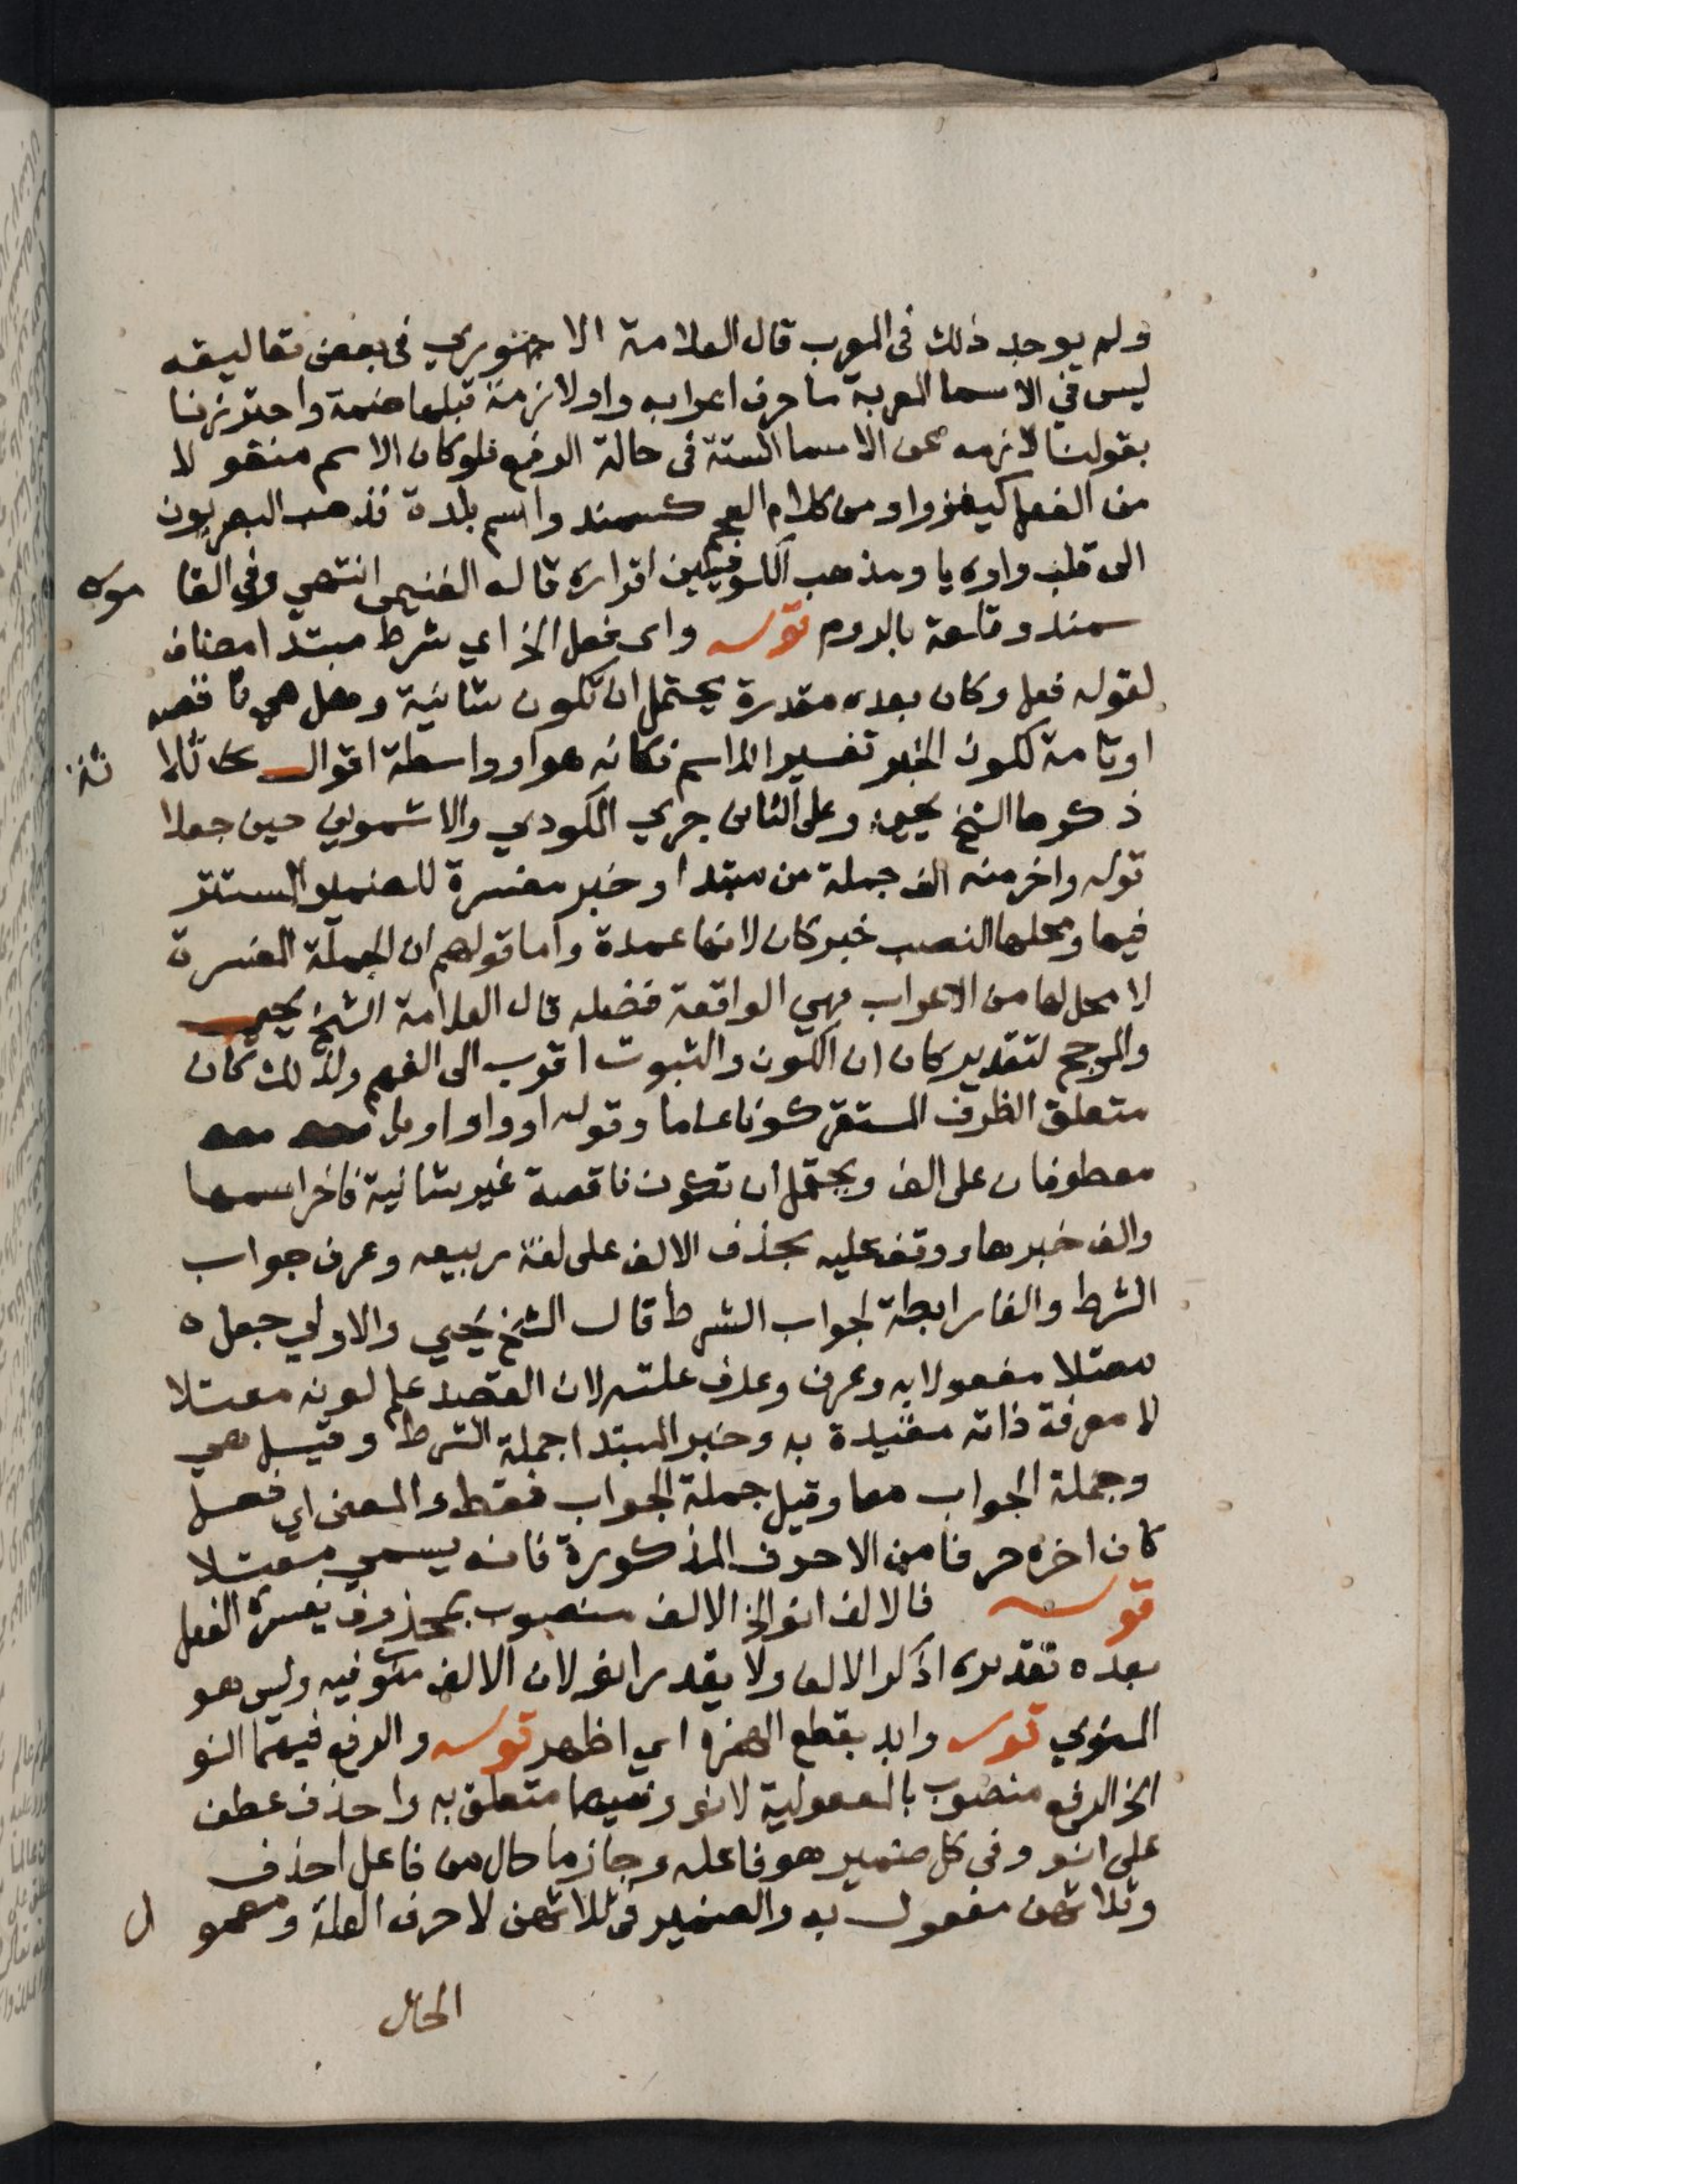 ولم يوجد ذلك فى المعرب قال العلامة الاجهوري فى بعض تعاليقه
ليس في الاسما المعربة ما حرف اعرابه واو لازمة قبلها ضمة واحترزنا
بقولنا لازمه عن الاسما الستة فى حالة الرفع فلو كان الاسم منقولا
من الفعل كيغزوا ومن كلام العجم كسمندو اسم بلدة فذهب البصريون
الى قلب واوه يا ومذهب الكوفيين اقراره قاله الغنيمى انتهي وفي القاموس
سمندو قلعة بالروم قوله واى فعل الخ اي شرط مبتدا مضاف
لقوله فعل وكان بعده مقدرة يحتمل ان تكون شانية وهل هي ناقصه
او تامة لكون الخبر تفسيرا للاسم فكانه هو او واسطة اقوال ثلاثة
ذكرها الشيخ يحيى وعلى الثانى جري المكودي والاشموني حين جعلا
قوله واخر منه الف جملة من مبتدا وخبر مفسرة للضمير المستتر
فيها ومحلها النصب خبر كان لانها عمدة واما قولهم ان الجملة المفسرة
لا محل لها من الاعراب فهي الواقعة فضله قال العلامة الشيخ يحيى
والمرجح لتقدير كان ان الكون والثبوت اقرب الى الفهم ولذلك كان
متعلق الظرف المستقر كونا عاما وقوله او واو او يا
معطوفان على الف ويحتمل ان تكون ناقصة غير شانية فاخر اسمها
والف خبرها ووقف عليه بحذف الالف على لغة ربيعه وعرف جواب
الشرط والفا رابطة لجواب الشرط قال الشيخ يحيي والاولي جعله
معتلا مفعولا به وعرف وعلف علته لان القصد علم لونه معتلا
لا معرفة ذاته مقيدة به وخبر المبتدا جملة الشرط وقيل هي
وجملة الجواب معا وقيل جملة الجواب فقط والمعنى اي فعل
كان اخره حرفا من الاحرف المذكورة فانه يسمي معتلا
قوله فالالف انو الخ الالف منصوب بمحذوف يفسره الفعل
بعده تقديره اذكر الالف ولا يقدر انو لان الالف منوي فيه وليس هو
المنوي قوله وابد بقطع الهمزة اي اظهر قوله والرفع فيهما انو
الخ الرفع منصوب بالمعمولية لانو وفيهما متعلق به واحذف عطف
على انو وفي كل ضمير هو فاعله وجازما حال من فاعل احذف
وثلاثهن مفعول به والضمير فى ثلاثهن لاحرف العلة ومعمول
الحال